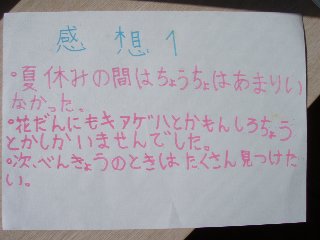 感想1
・夏休みの間はちょうちょはあまりい
なかった。
・花だんにもキアゲハとかもんしろちょう
とかしかいませんでした。
・次、べんきょうのときはたくさん見つけた
い。